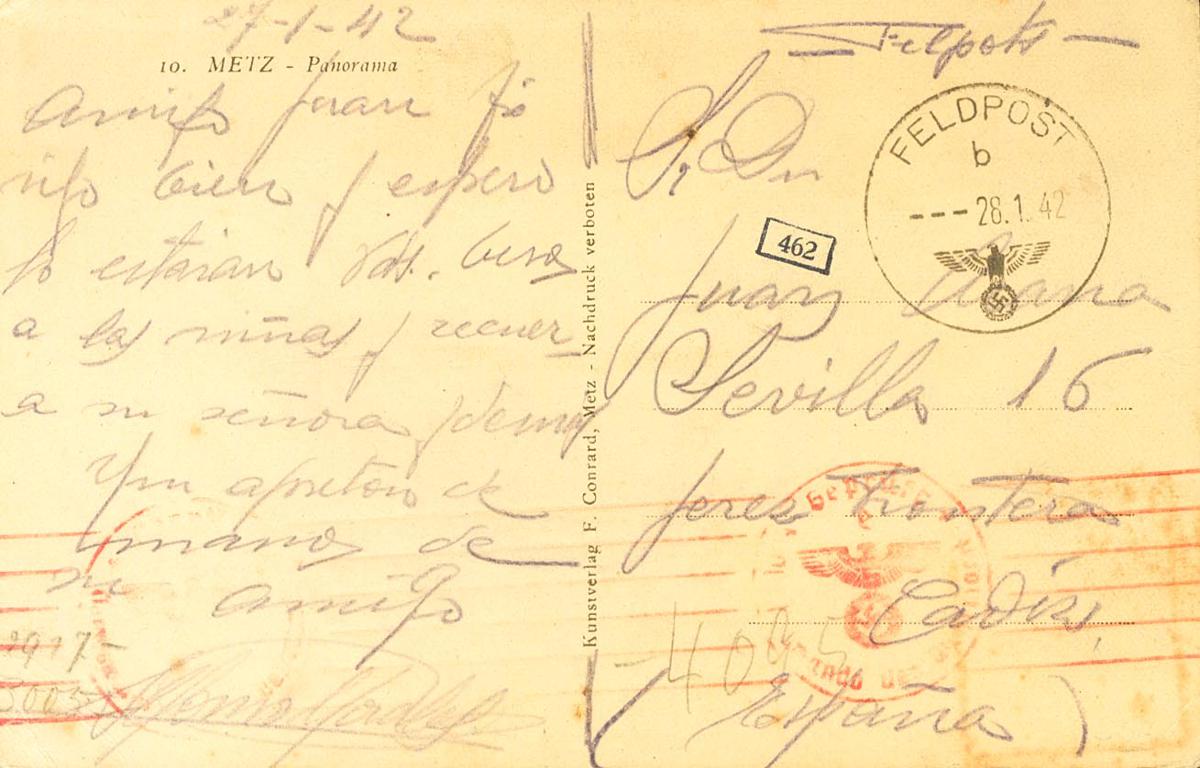 27-1-42
10. METZ - Panorama
Amigo Juan Yo
sigo bien y espero
lo estarán Vds. besos
a las niñas y recuer_
a su señora y demas
Y un apretón de
manos de
su amigo
Felpots
Sr Dn
Juan
Sevilla 16
Jerez Frontera
Cadiz,
(España)
FELDPOST
b
--- 28.1.42
462
Kunstverlag F. Conrard, Metz - Nachdruck verboten
4095